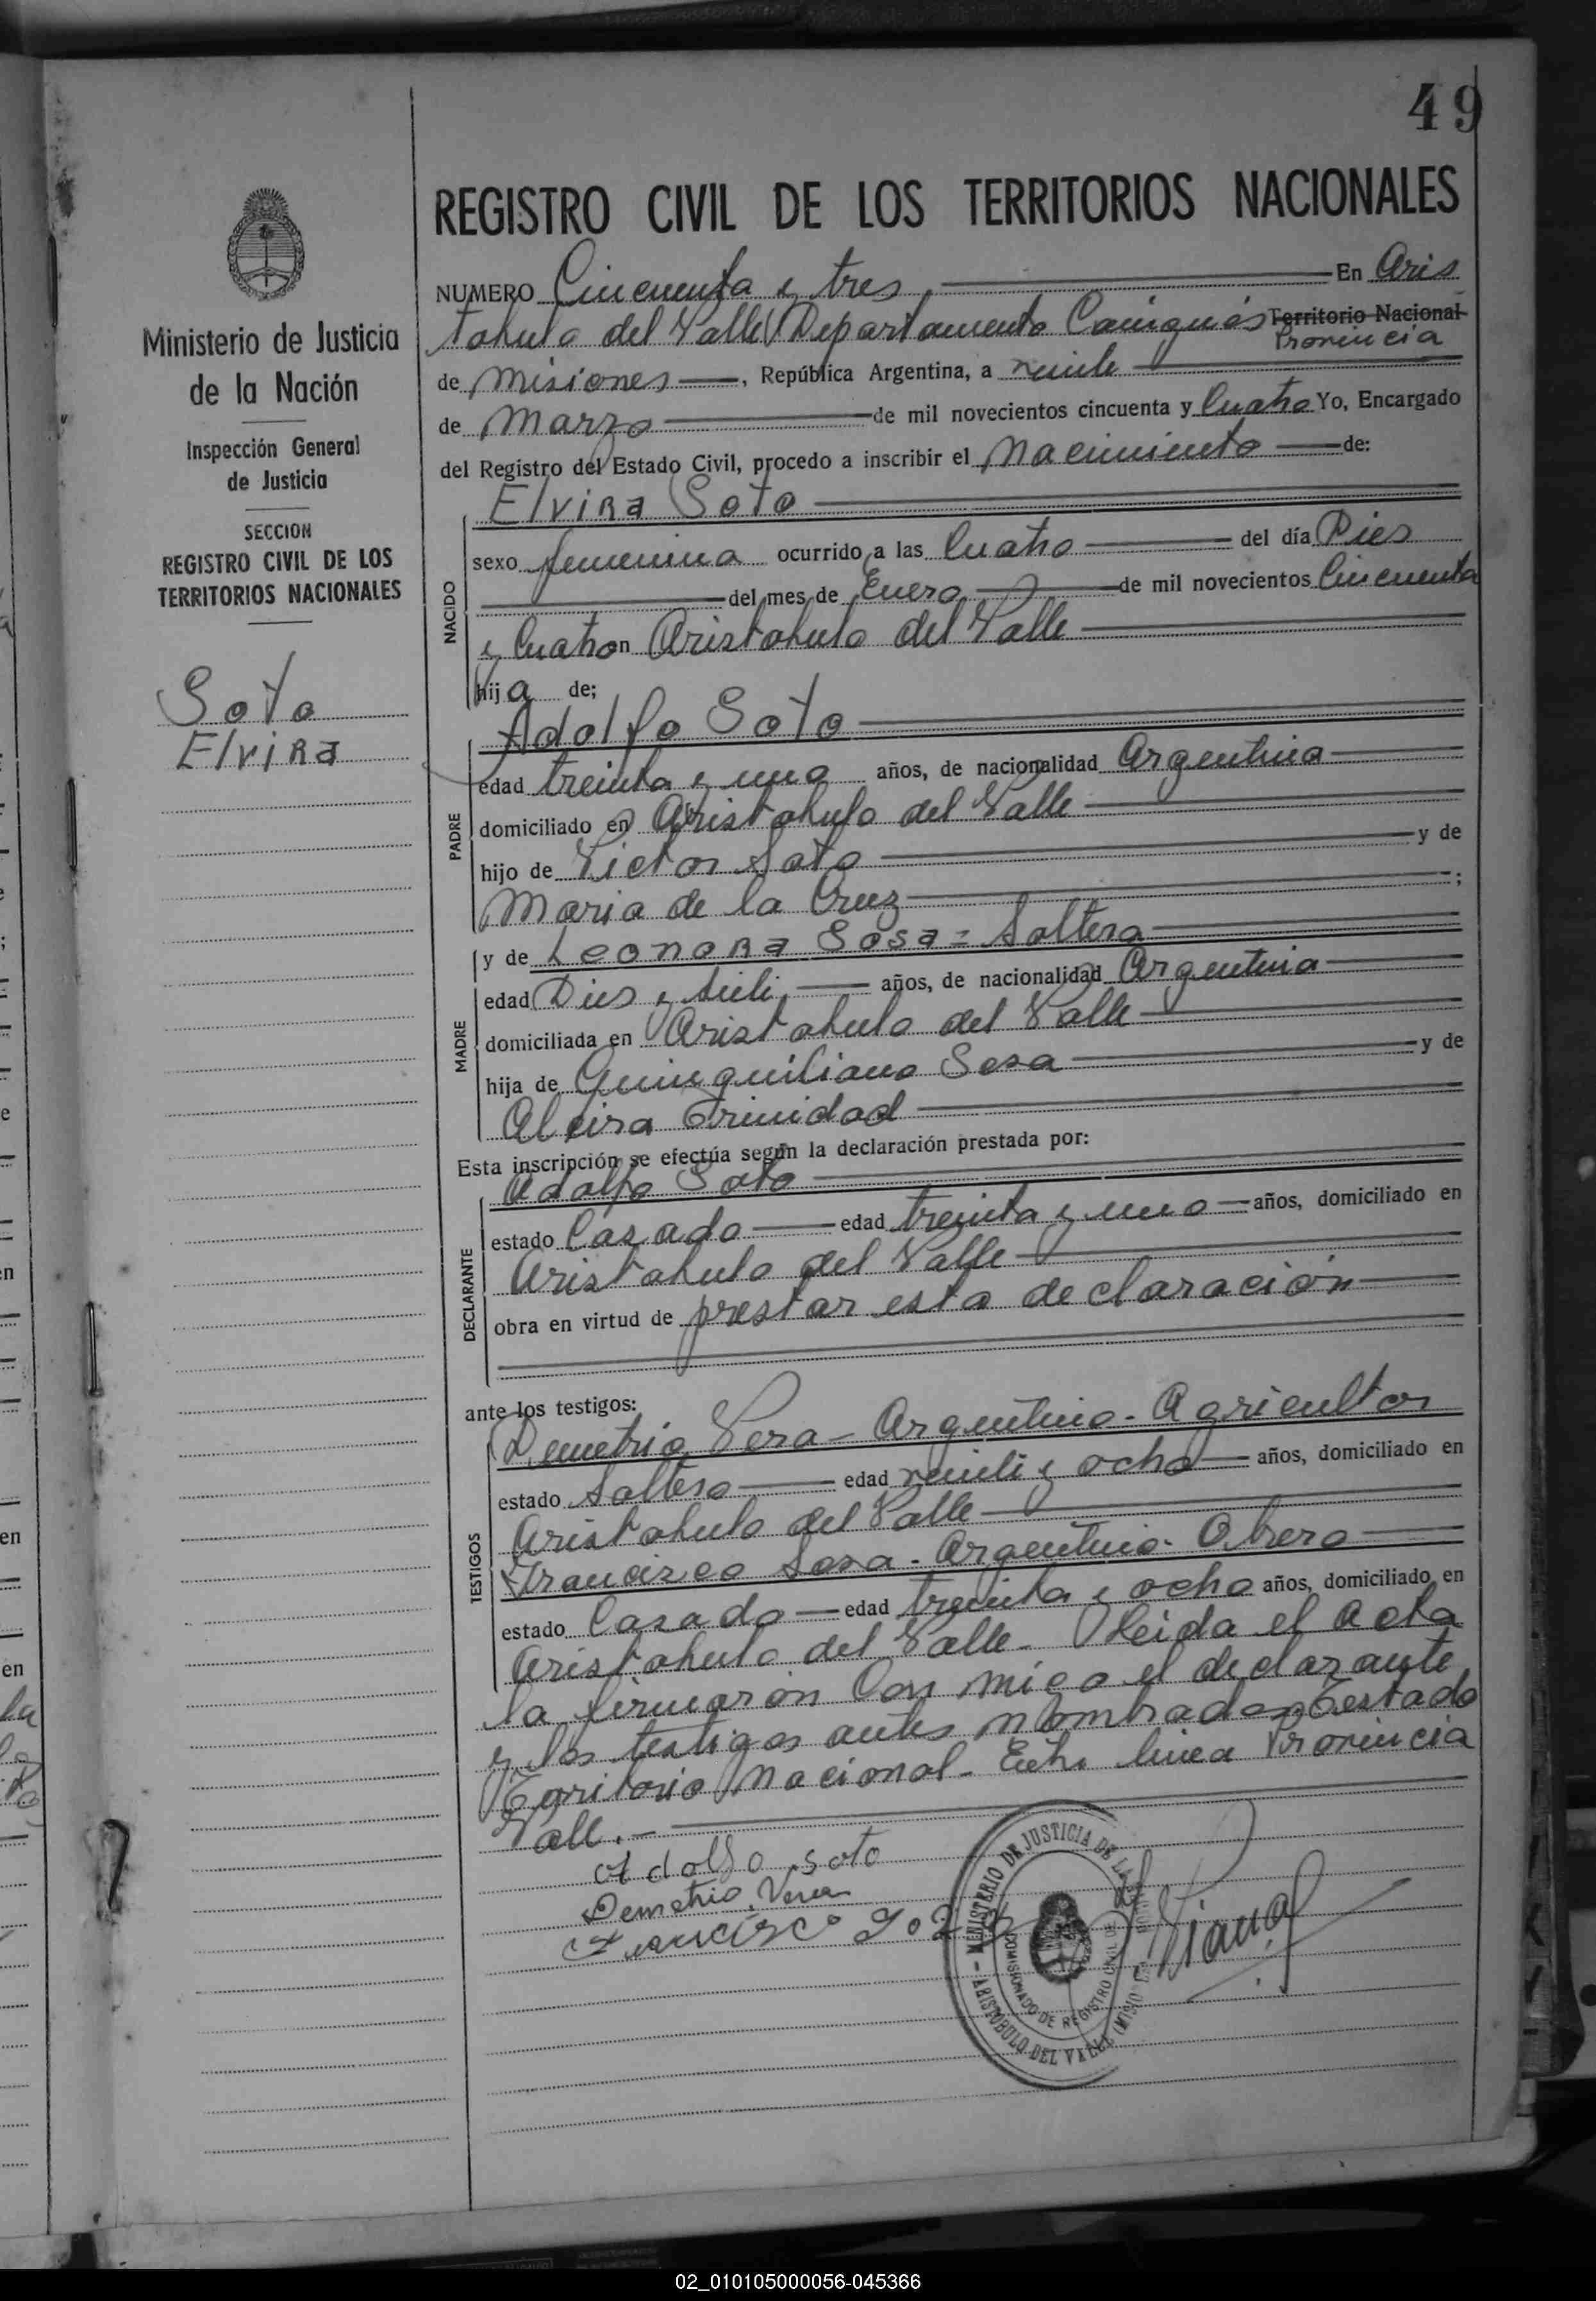 49
REGISTRO CIVIL DE LOS TERRITORIOS NACIONALES
Ministerio de Justicia
de la Nación
Inspección General
de Justicia
SECCION
REGISTRO CIVIL DE LOS
TERRITORIOS NACIONALES
Soto
Elvira
NUMERO Cincuenta y tres En Aris
tobulo del Valle Departamento Cainguás Territorio Nacional
Provincia
de Misiones, República Argentina, a veinte
de Marzo de mil novecientos cincuenta y Cuatro Yo, Encargado
del Registro del Estado Civil, procedo a inscribir el Nacimiento de:
NACIDO
Elvira Soto
sexo femenina ocurrido a las Cuatro del día Dies
del mes de Enero de mil novecientos Cincuenta
y Cuatro en Aristobulo del Valle
hija de;
PADRE
Adolfo Soto
edad treinta y uno años, de nacionalidad Argentina
domiciliado en Aristobulo del Valle
hijo de Victor Soto y de
Maria de la Cruz ;
MADRE
y de Leonora Sosa = Soltera
edad Dies y años, de nacionalidad Argentina
domiciliada en Aristobulo del Valle
hija de Quinquiliano Sosa y de
Alcira Trinidad
Esta inscripción se efectúa según la declaración prestada por:
DECLARANTE
Adolfo Soto
estado Casado edad treinta y uno años, domiciliado en
Aristobulo del Valle
obra en virtud de prestar esta declaración
ante los testigos:
TESTIGOS
Demetrio Vera - Argentino - Agricultor
estado Soltero edad veinti y ocho años, domiciliado en
Aristobulo del Valle
Francisco Sosa - Argentino - Obrero
estado Casado edad treinta y ocho años, domiciliado en
Aristobulo del Valle - Leida el Acta
la firmaron Con migo el declarante
y los testigos antes nombrados Testado
Territorio Nacional - Entre linea Provincia
Vale. -
Adolfo Soto
Demetrio Vera
Francisco
MINISTERIO DE JUSTICIA DE LA
COMISIONADO DE REGISTRO CIVIL
ARISTOBULO DEL VALLE
02_010105000056-045366